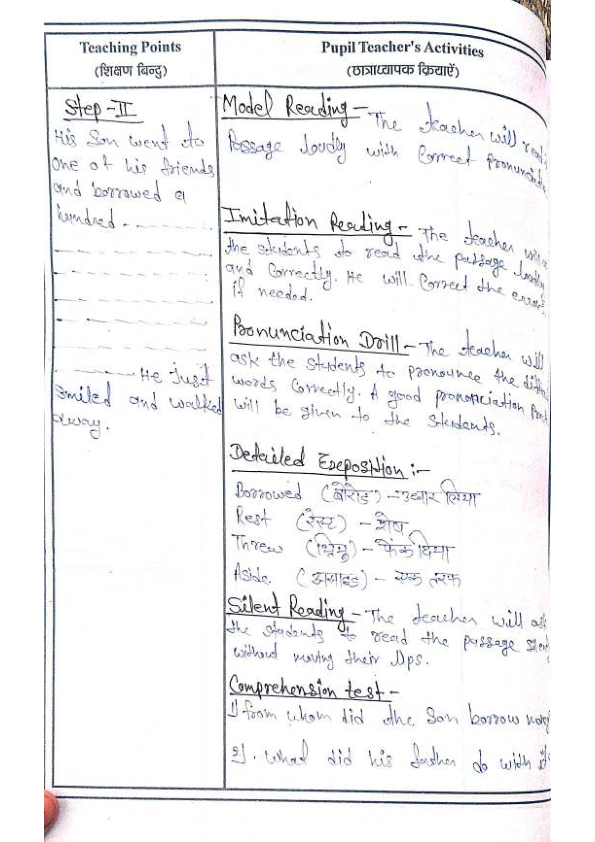 Teaching Points
(शिक्षण बिन्दु)
Pupil Teacher's Activities
(छात्राध्यापक क्रियाएँ)
Step-II
His Son went to
one of his friends
and borrowed a
hundred
He just
smiled and walked
away.
Model Reading - The teacher will
Passage loudly with Correct
Imitation Reading - The teacher will
the students to read the passage loudly
and Correctly. He will Correct the
if needed.
Pronunciation Drill - The teacher will
ask the students to pronounce the
words Correctly. A good
will be given to the Students.
Detailed Exeposition :-
Borrowed (बोरोड) - उधार लिया
Rest (रेस्ट) - शेष
Threw (थ्रियु) - फेंक दिया
Aside (असाइड) - एक तरफ
Silent Reading - The teacher will ask
the students to read the passage
without moving their lips.
Comprehension test -
1) from whom did the Son borrow
2). What did his father do with it